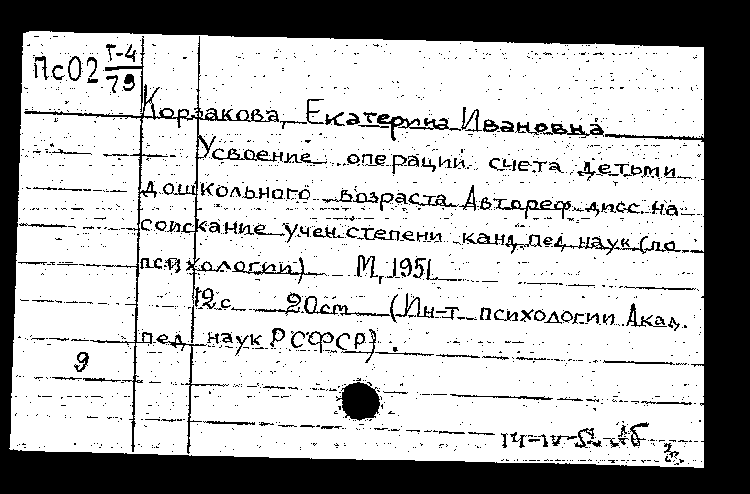 Пс02 Т-4/79
Корзакова, Екатерина Ивановна
Усвоение операции счета детьми
дошкольного возраста. Автореф. дисс. на
соискание учен. степени канд. пед. наук (по
психологии) М, 1951.
12с 20см (Ин-т психологии Акад.
пед. наук РСФСР).
9
14-IV-52 Аб